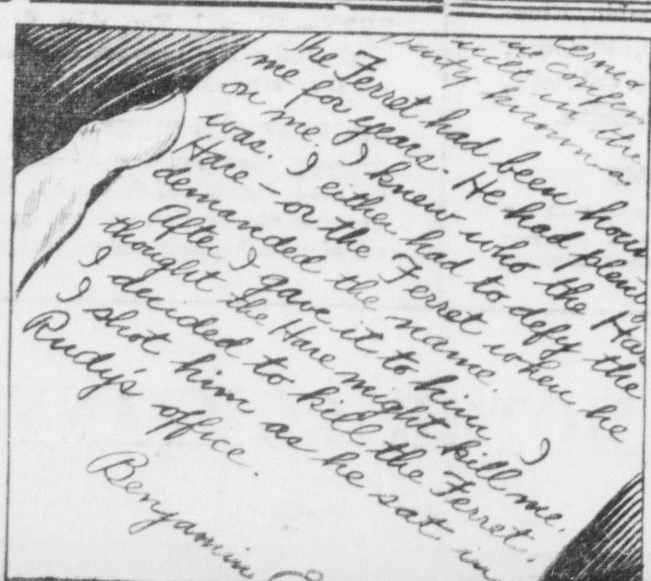 cerned
confes
in the
known a
The Ferret had been houn
me for years. He had plenty
on me. I knew who the Har
was. I either had to defy the
Hare – or the Ferret when he
demanded the name.
After I gave it to him, I
thought the Hare might kill me.
I decided to kill the Ferret.
I shot him as he sat in
Rudy's office.
Benjamin